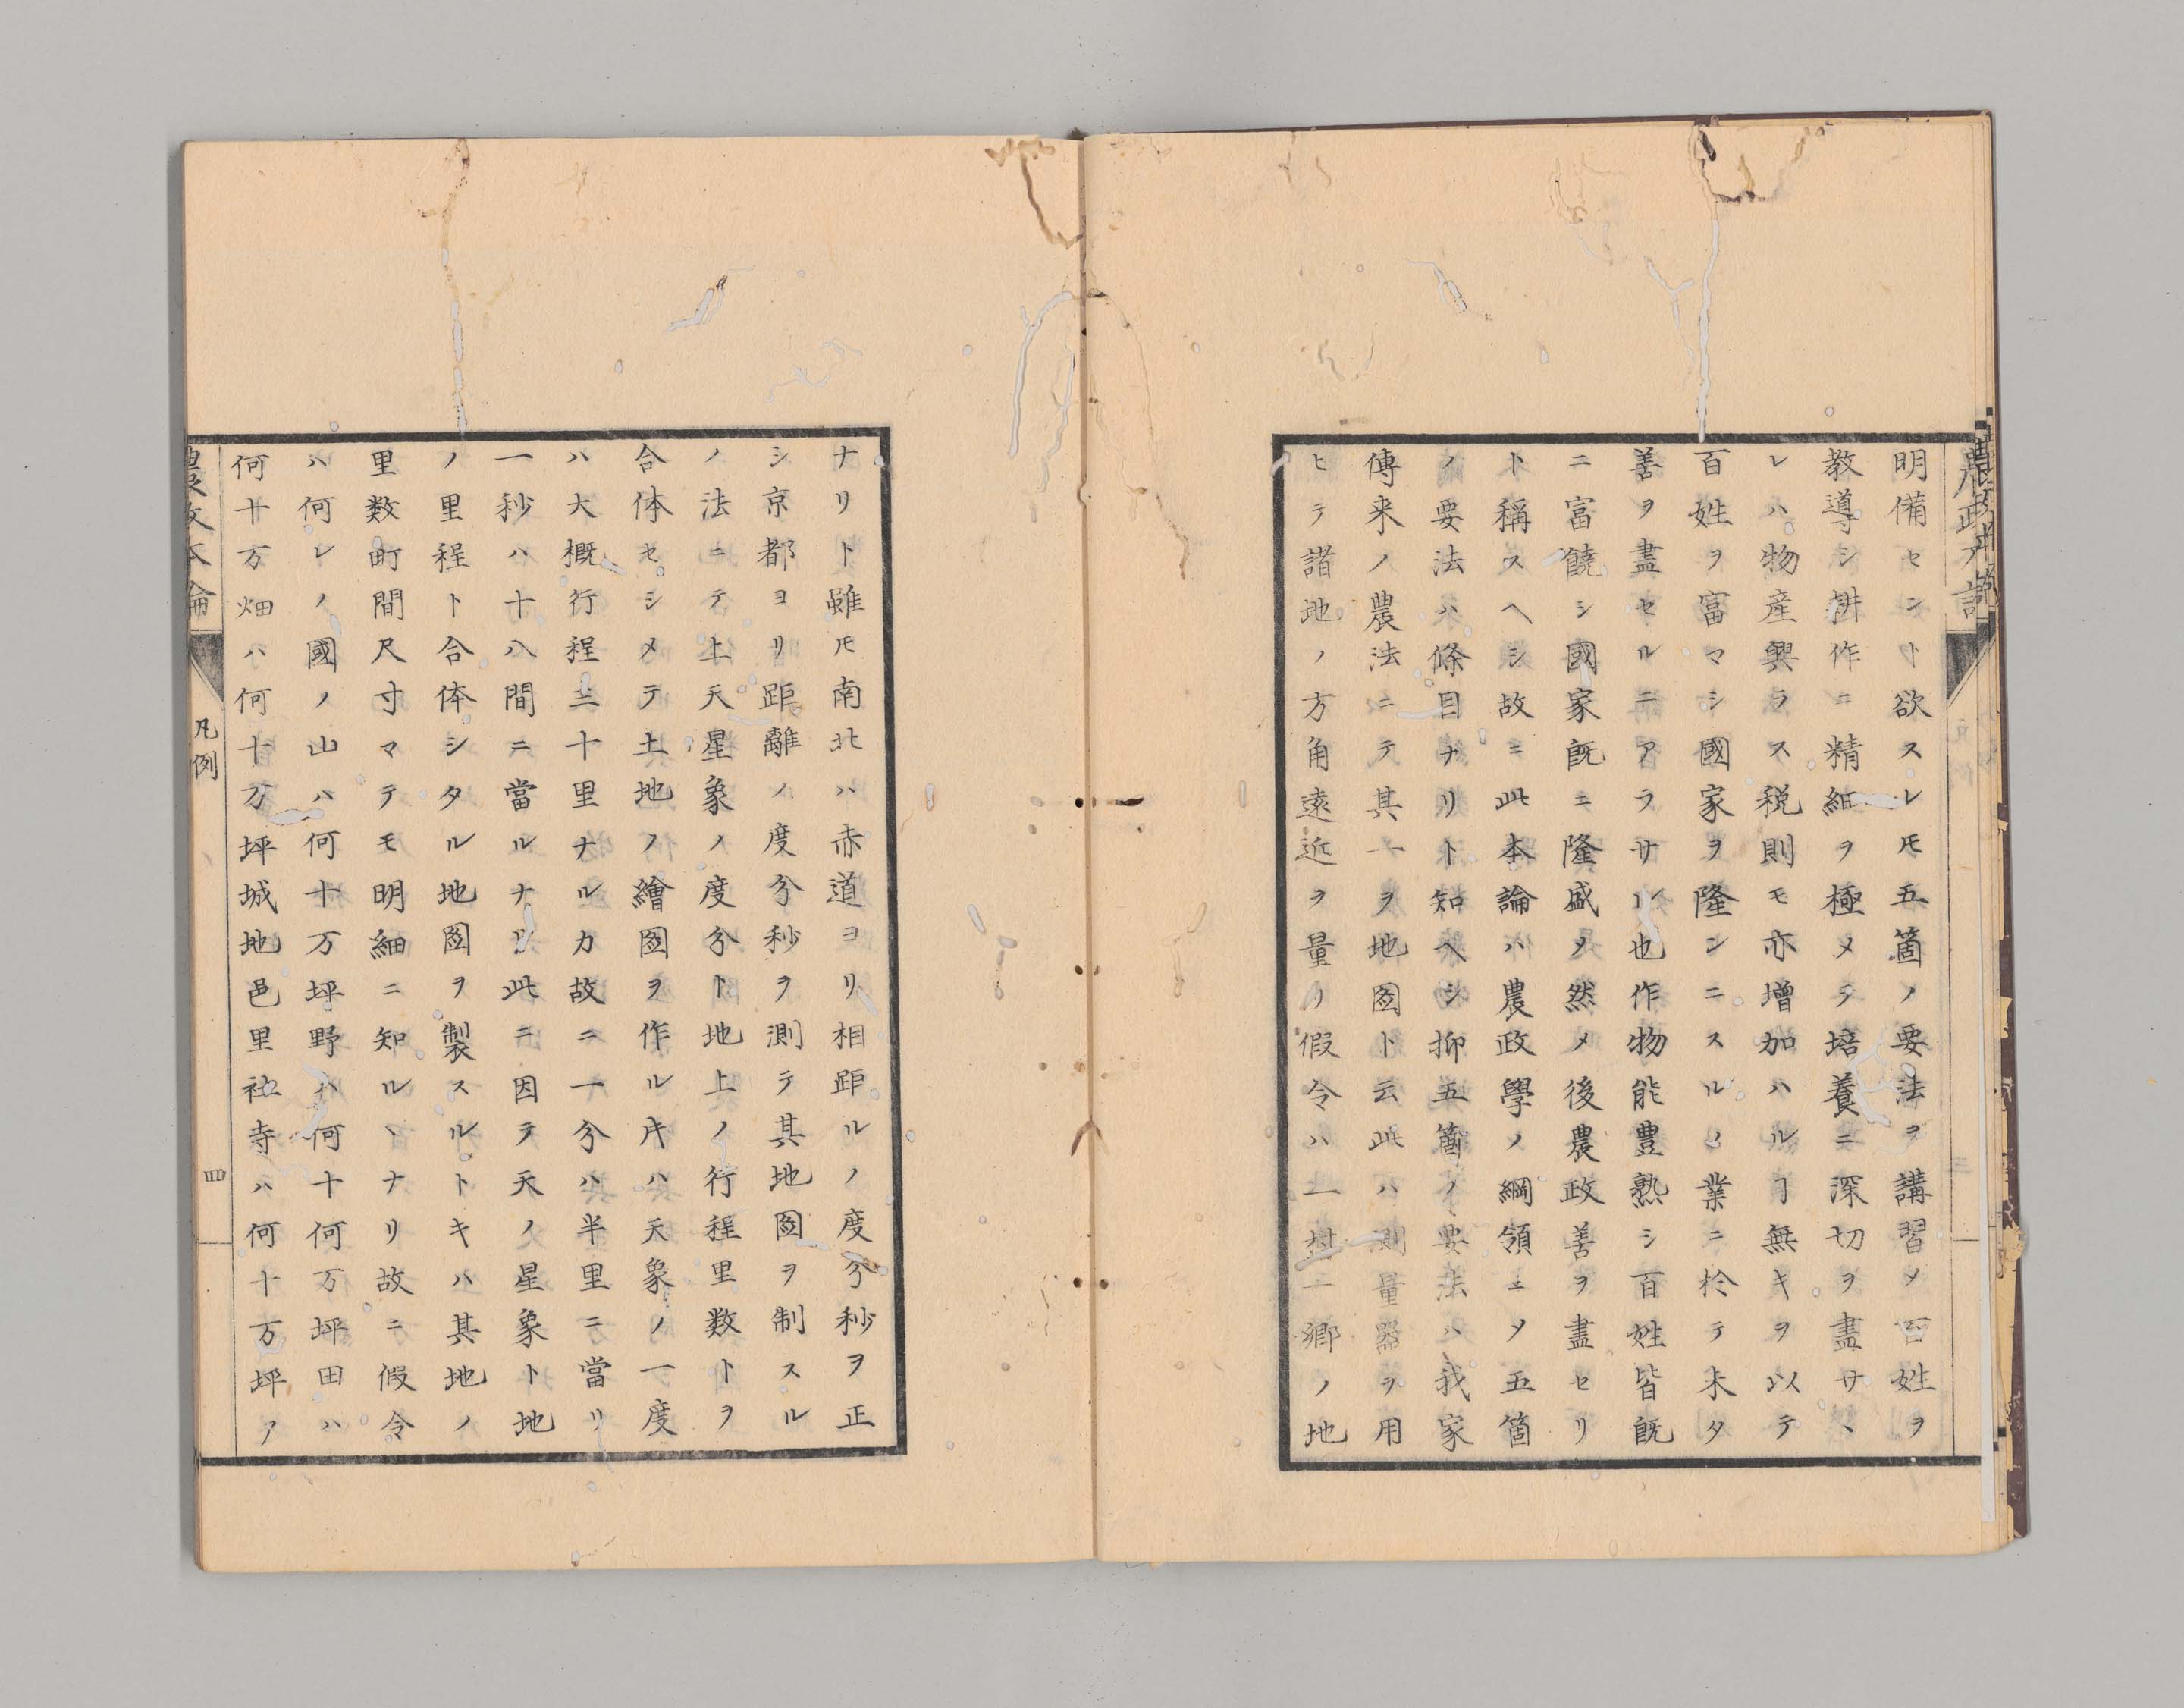 明備セント欲スレㇳモ五箇ノ要法ヲ講習メ百姓ヲ
教導シ耕作ニ精細ヲ極メテ培養ニ深切ヲ盡サヽ
レハ物産興ラス税則モ亦増加ハルヿ無キヲ以テ
百姓ヲ富マシ國家ヲ隆ンニスルノ業ニ於テ未タ
善ヲ盡セルニアラサル也作物能豊熟シ百姓皆既
ニ富饒シ國家既ニ隆盛ヲ然メ後農政善ヲ盡セリ
ト稱スヘシ故ニ此本論ハ農政學ノ綱領ニメ五箇
ノ要法ハ條目ナリト知ヘシ抑五箇ノ要法ハ我家
傳来ノ農法ニテ其一ヲ地図ト云此ハ測量器ヲ用
ヒテ諸地ノ方角遠近ヲ量リ假令ハ一村一郷ノ地
農政本論
ナリト雖ㇳモ南北ハ赤道ヨリ相距ルノ度分秒ヲ正
シ京都ヨリ距離ノ度分秒ヲ測テ其地図ヲ制スル
ノ法ニテ上天星象ノ度分ト地上ノ行程里数トヲ
合体セシメテ土地ノ繪図ヲ作ル𪜈ハ天象ノ一度
ハ大概行程三十里ナルカ故ニ一分ハ半里ニ當リ
一秒ハ十八間ニ當ルナリ此ニ因テ天ノ星象ト地
ノ里程ト合体シタル地図ヲ製スルトキハ其地ノ
里数町間尺寸マテモ明細ニ知ルヽナリ故ニ假令
ハ何レノ國ノ山ハ何十万坪野ハ何十何万坪田ハ
何十万畑ハ何十万坪城地邑里社寺ハ何十万坪ア
農政本論
凡例
四